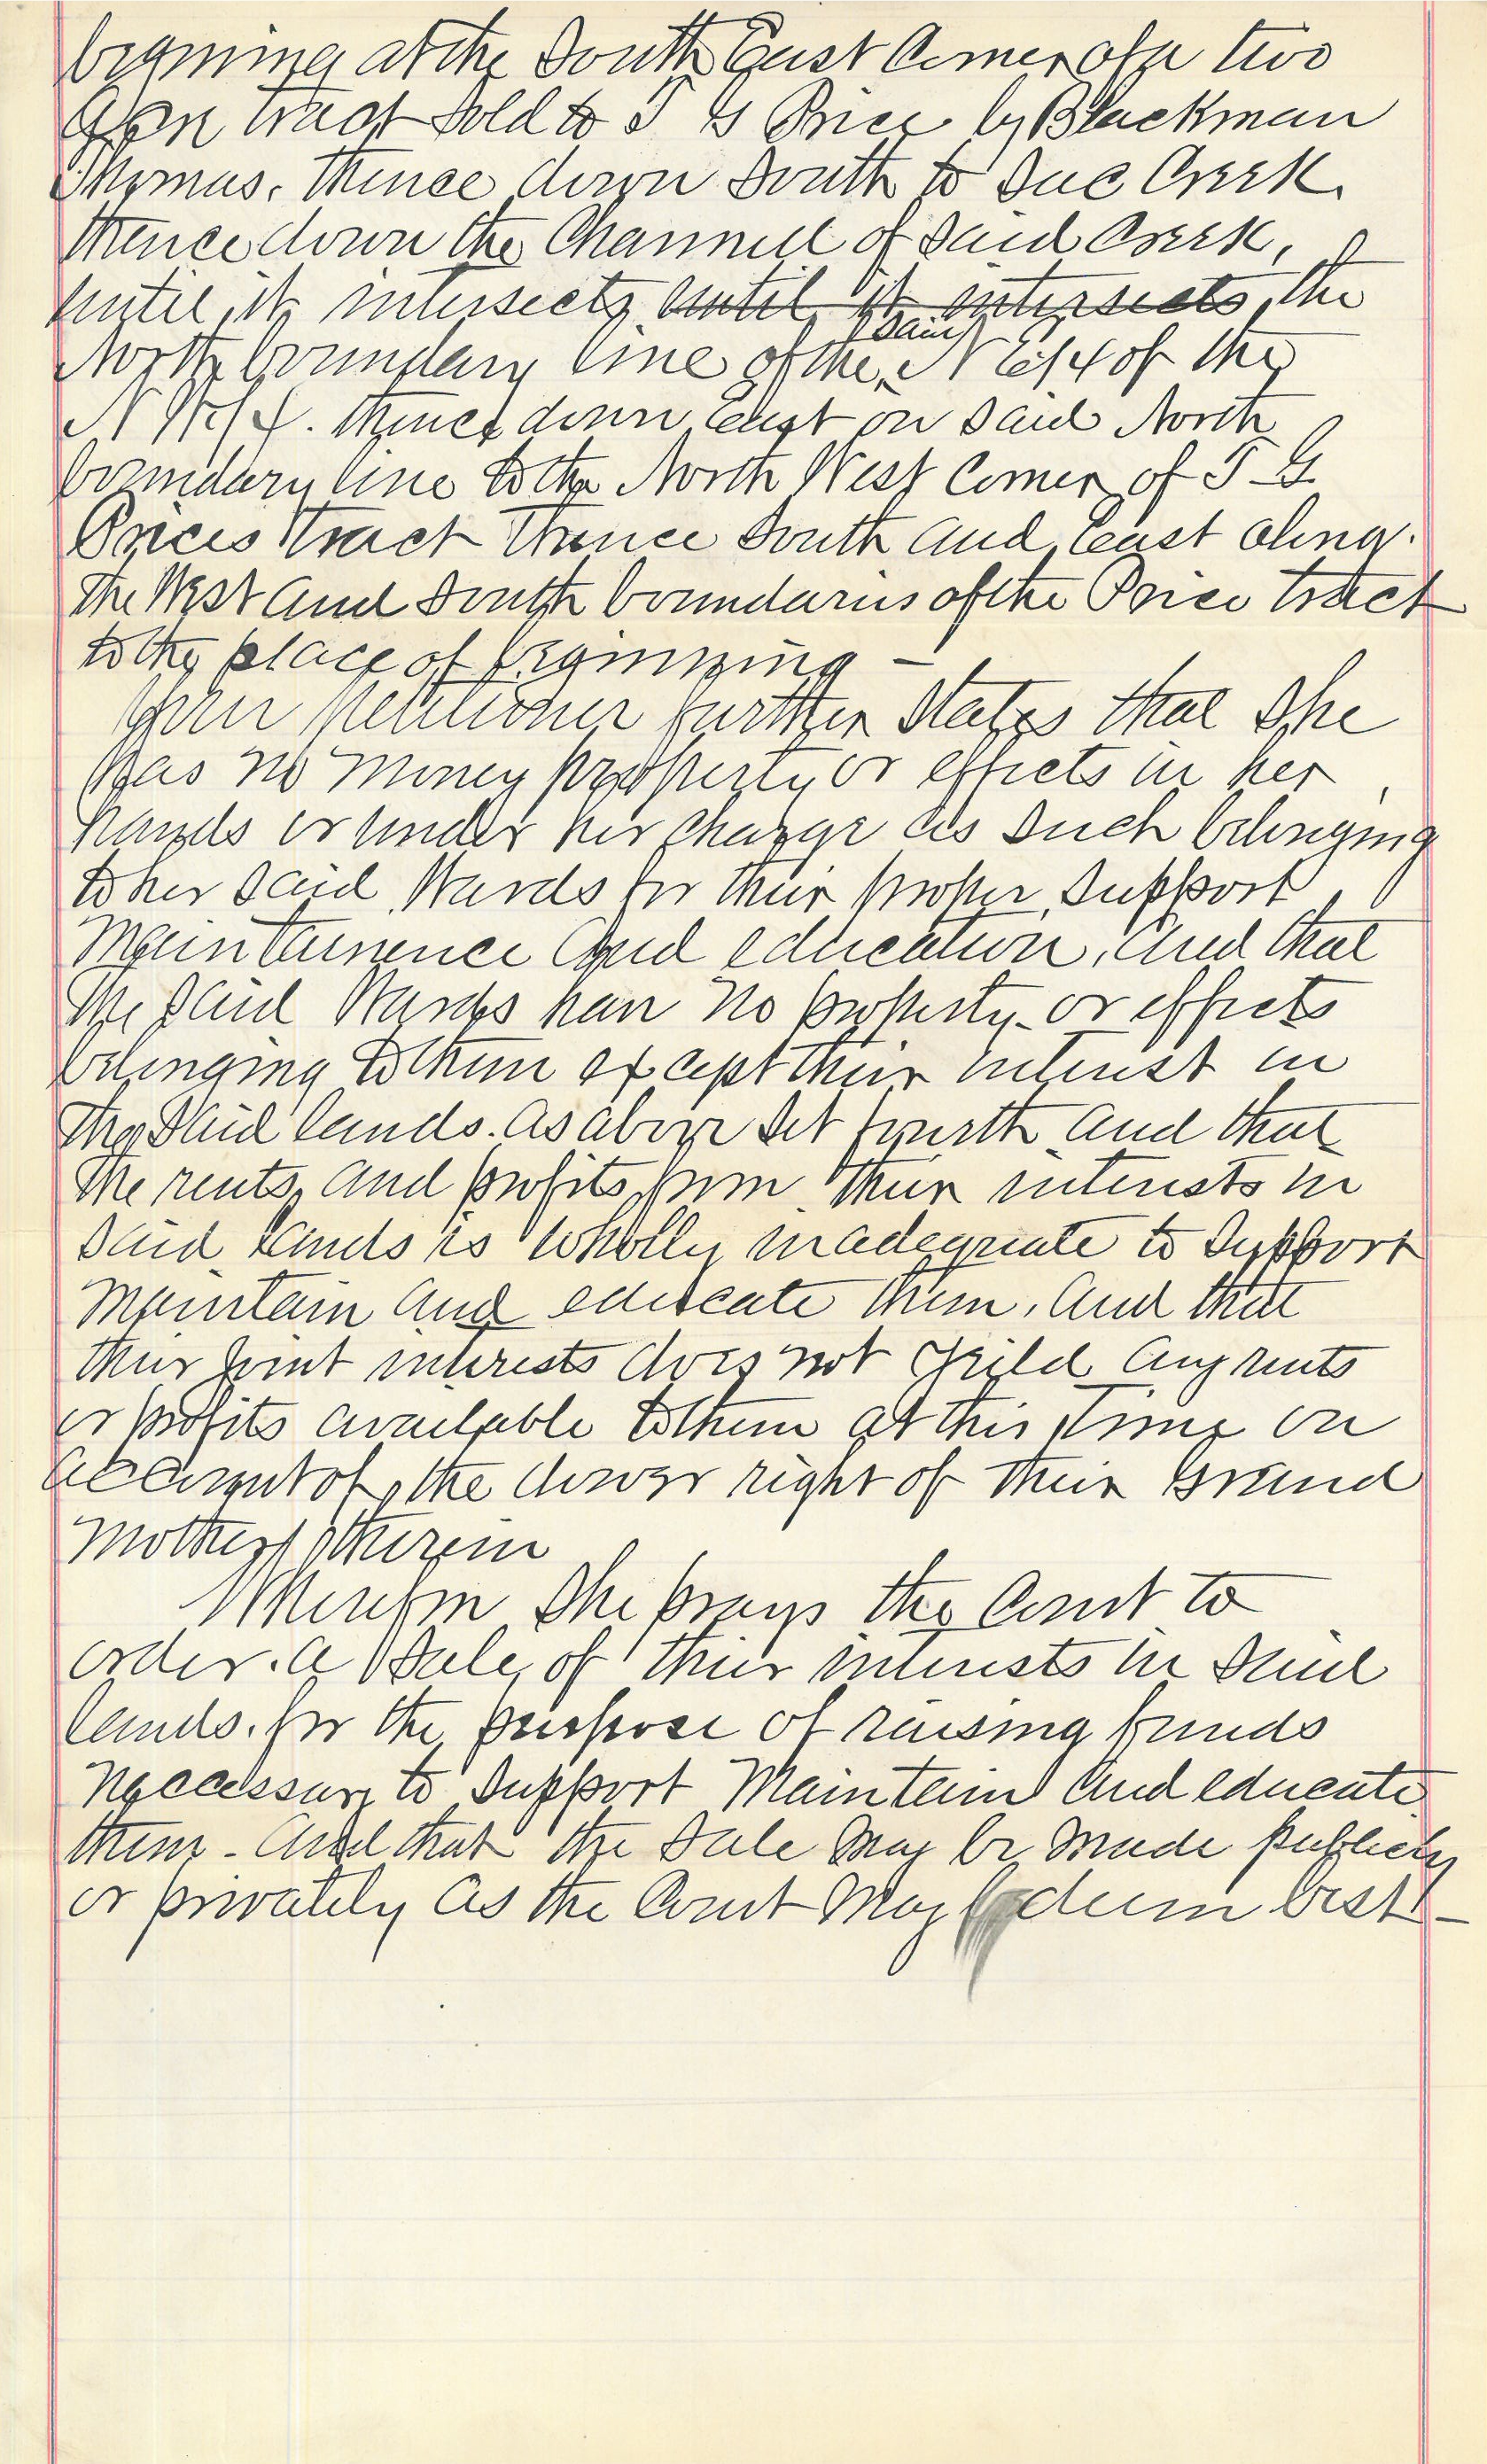 begining at the South East Corner of a two
Acre tract sold to T G Price by Blackman
Thomas. Thence down South to Due Creek.
thence down the Channell of said Creek,
until it intersects until it intersects the
North boundary line of the said N E 1/4 of the
N W 1/4. thence down east on said North
boundary line to the North West Corner of T G
Prices tract thence South and east along
the West and South boundaries of the Price tract
to the place of beginning —
Your petitioner further states that she
has no money property or effects in her
hands or under her charge as such belonging
to her said Wards for their proper support
Maintainence and education, and that
the said Wards have no property or effects
belonging to them except their interest in
the said lands. as above set fourth and that
the rents and profits from their interests in
said lands is wholly inadequate to support
Maintain and educate them, and that
their joint interests does not yeild any rents
or profits available to them at this time on
account of the dower right of their Grand
mother therein
Wherefor she prays the Court to
order. a sale of their interests in said
lands. for the purpose of raising funds
neccessary to support Maintain and educate
them - And that the sale may be made publicly
or privately as the Court may deem best —